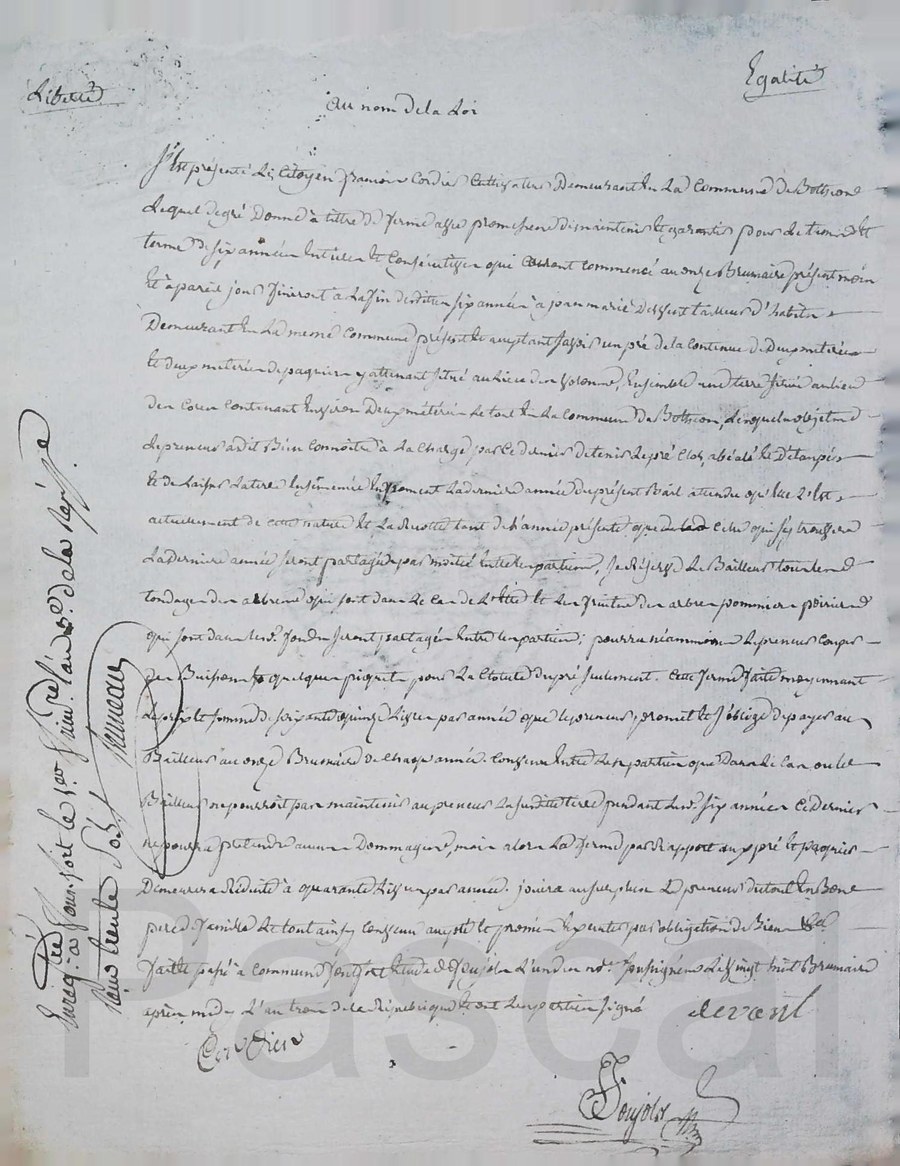 Liberté
Egalité
au nom de la Loi
S'est présenté Le Citoyen francois Cordier Cultivateur Demeurant En La Commune de
Lequel de gré Donne à tittre de ferme avec promesse de maintenir et garantir pour Le tems et
terme de six années Entieres et Consécutives qui Auront commencé au onze Brumaire présent mois
Et à pareil jour finiront à La fin desdites six années à jean marie tailleur d'habits
Demeurant En La meme Commune présent et acceptant savoir un pré de la Contenue de Deux métérées
et deux métérées de paquier y attenant situé au Lieu des Ensemble une terre située au lieu
des Contenant Environ Deux métérées Le tout En La Commune de Lesquels objets
Le preneur a dit Bien Connoitre à La Charge par Ce dernier de tenir Le pré Clos,
et de Laisser La terre Ensemencée En froment La derniere année du présent Bail attendu qu'elle Est
actuellement de cette nature Et La Recolte tant de L'année présente que de Celle qui s'y trouvera
La Derniere année seront partagées par moitié Entre les parties, se Réserve Le Bailleur toutes
tondages des arbres qui sont dans Le Cas de L'être Et Les fruits des arbres pommiers poiriers
qui sont dans Lesd. fonds seront partagés Entre les parties; pourra néammoins Le preneur Couper
des Buissons quelques piquets pour La Cloture du pré seulement. Cette ferme faite moyennant
Le prix et somme de soixante quinze Livres par année que Le preneur promet et s'oblige de payer au
Bailleur au onze Brumaire de Chaque année. Convenu Entre Les parties que Dans Le Cas ou Le
Bailleur ne pourroit pas maintenir au preneur La susditte terre pendant Lesd. six années Ce dernier
ne pourra prétendre aucuns Dommages, mais alors La ferme par Rapport aux pré et paquier
Demeurera Réduite à quarante Livres par année. jouira au surplus Le preneur du tout En Bon
pere de famille Le tout ainsy Convenu accepté et promis Executer par obligation de Biens
faitte passé à Commune Etude de Soujols L'un des nots. soussignés Le vingt huit Brumaire
après midy L'an trois de la République Et ont Les parties signé
Cordier
Soujols
Enreg. à le 1er frim. l'an 3e de la Rép.
Reçu trente sols